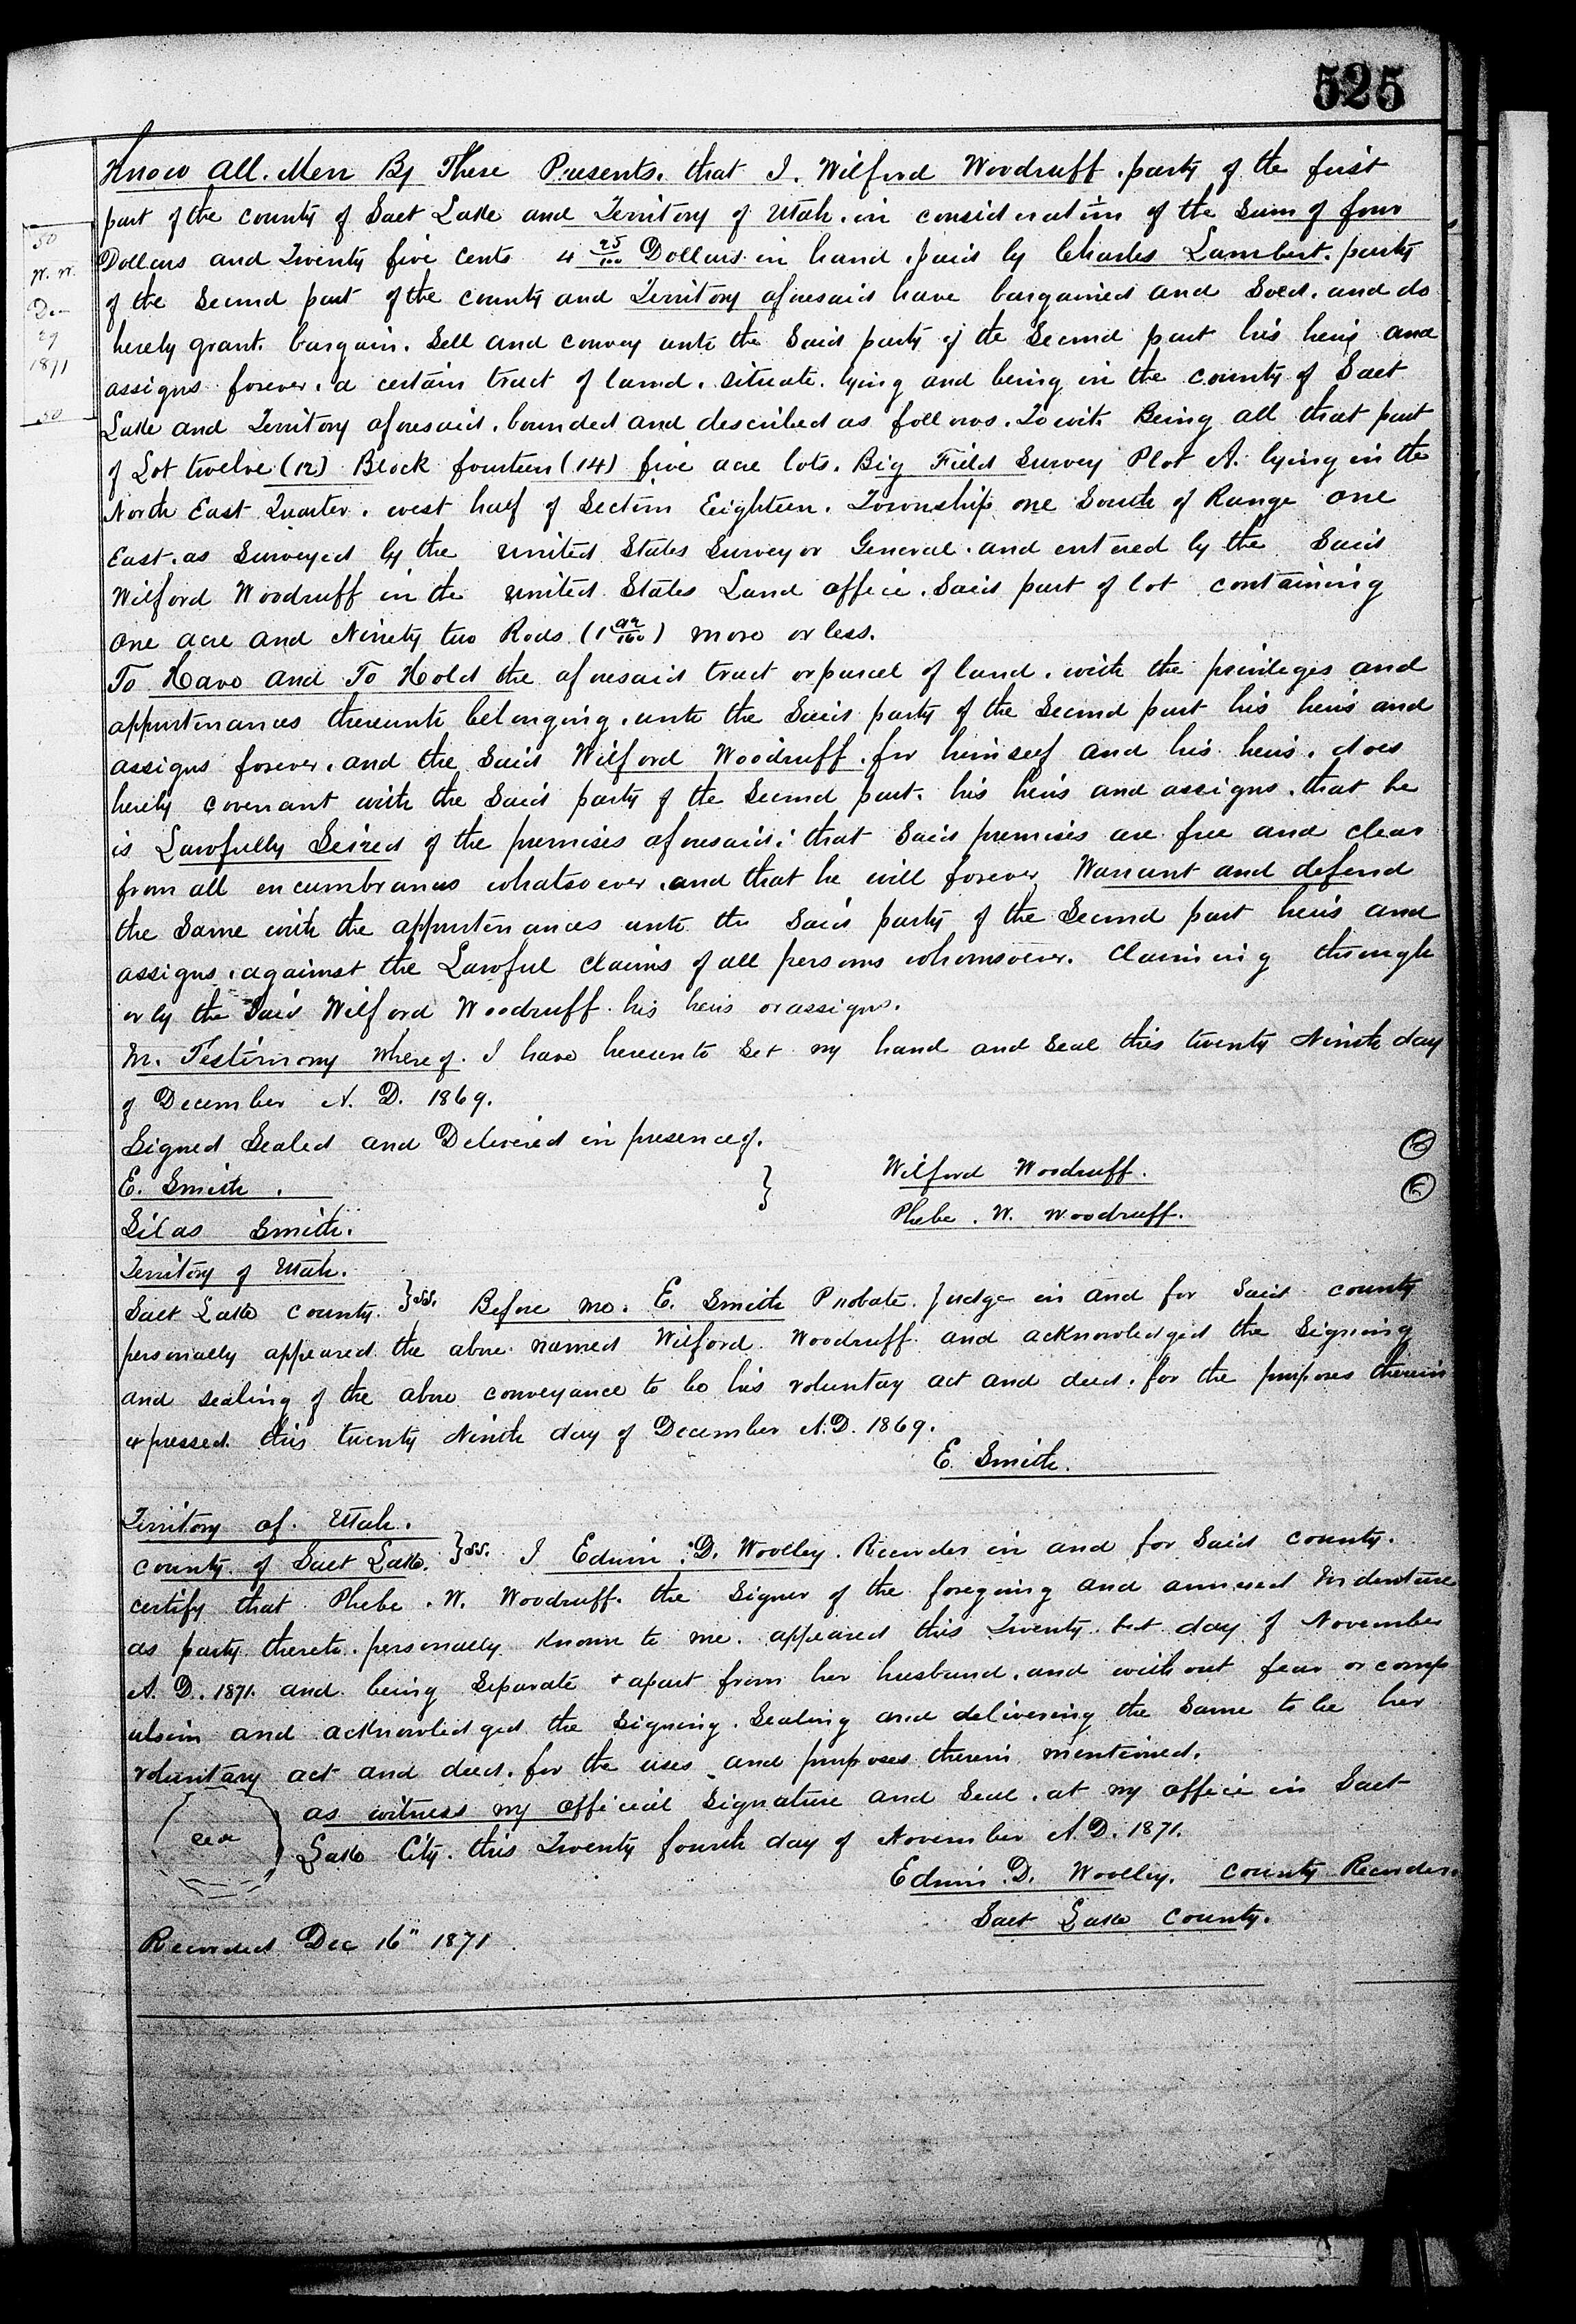 525
Know All. Men By These Presents. that I. Wilford Woodruff. party of the first
part of the county of Salt Lake and Territory of Utah. in consideration of the Sum of four
50
Dollars and Twenty five cents 4 25/100 Dollars in hand. paid by Charles Lambert. party
W. W.
of the Second part of the county and Territory aforesaid have bargained and Sold. and do
Dec
29
hereby grant. bargain. Sell and convey unto the Said party of the Second part his heirs and
1871
assigns forever. a certain tract of land. situate. lying and being in the county of Salt
50
Lake and Territory aforesaid. bounded and described as follows. Towit. Being all that part
of Lot twelve (12) Block fourteen (14) five acre lots. Big Field Survey Plot A. lying in the
North East Quarter. west half of Section Eighteen. Township one South of Range one
East. as Surveyed by the united States Surveyor General. and entered by the Said
Wilford Woodruff in the united States Land office. Said part of lot containing
one acre and Ninety two Rods (1 92/160) more or less.
To Have and To Hold the aforesaid tract or parcel of land. with the privileges and
appurtenances thereunto belonging. unto the Said party of the Second part his heirs and
assigns forever. and the Said Wilford Woodruff. for himself and his heirs. does
hereby covenant with the Said party of the Second part. his heirs and assigns. that he
is Lawfully Seized of the premises aforesaid. that Said premises are free and clear
from all encumbrances whatsoever. and that he will forever Warrant and defend
the Same with the appurtenances unto the Said party of the Second part heirs and
assigns. against the Lawful claims of all persons whomsoever. Claiming through
or by the Said Wilford Woodruff his heirs or assigns.
In. Testimony Whereof. I have hereunto Set my hand and Seal this twenty Ninth day
of December A. D. 1869.
Signed Sealed and Delivered in presence of.
E. Smith. } Wilford Woodruff.
Silas Smith. Phebe. W. Woodruff.
Territory of Utah.
Salt Lake County. }SS. Before me. E. Smith Probate. Judge in and for Said county
personally appeared the above named Wilford Woodruff and acknowledged the Signing
and sealing of the above conveyance to be his voluntary act and deed. for the purposes therein
expressed. this twenty Ninth day of December A.D. 1869.
E. Smith.
Territory of. Utah.
County of Salt Lake. }SS. I Edwin. D. Woolley. Recorder in and for Said County.
certify that Phebe. W. Woodruff. the Signer of the foregoing and annexed Indenture
as party thereto. personally known to me. appeared this Twenty day of November
A. D. 1871. and being Separate + apart from her husband. and without fear or comp
ulsion and acknowledged the Signing. Sealing and delivering the Same to be her
voluntary act and deed. for the uses and purposes therein mentioned.
as witness my official Signature and Seal. at my office in Salt
Lake City. this Twenty fourth day of November A.D. 1871.
Edwin. D. Woolley. County Recorder.
Salt Lake County.
Recorded Dec 16" 1871